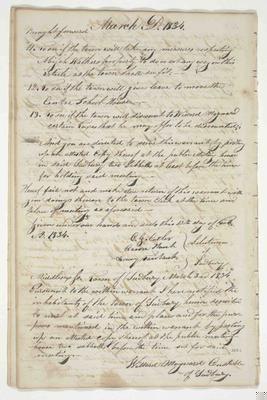 March 3d. 1834.
brought forward
11. To see if the town will take any measures respecting
property to do or act any way on this
article as the town shall see fit.
12. To see if the town will give leave to move the
Centre School House.
13. To see if the town will discount to Wisner Maynard
certain taxes that he may offer to be discounted.
And you are directed to serve this warrant by posting
up an attested copy thereof at the public
in said Sudbury two Sabbaths at least before the time
for holding said meeting.
Hereof fail not and make due return of this warrant with
your doings thereon to the town Clerk at the time and
place of meeting as aforesaid.
Given under our hands and seals this 12th day of Feb.
A.D. 1834.
Selectmen
of
Sudbury
Middlesex ss. Town of Sudbury March 3d 1834
Pursuant to the within warrant I have notified the
inhabitants of the town of Sudbury herein described
to meet at said time and place and for the pur-
poses mentioned in the within warrant by posting
up an attested copy thereof at the public meeting
house two sabbaths before the time set for said
meeting.
Maynard Constable
of Sudbury.